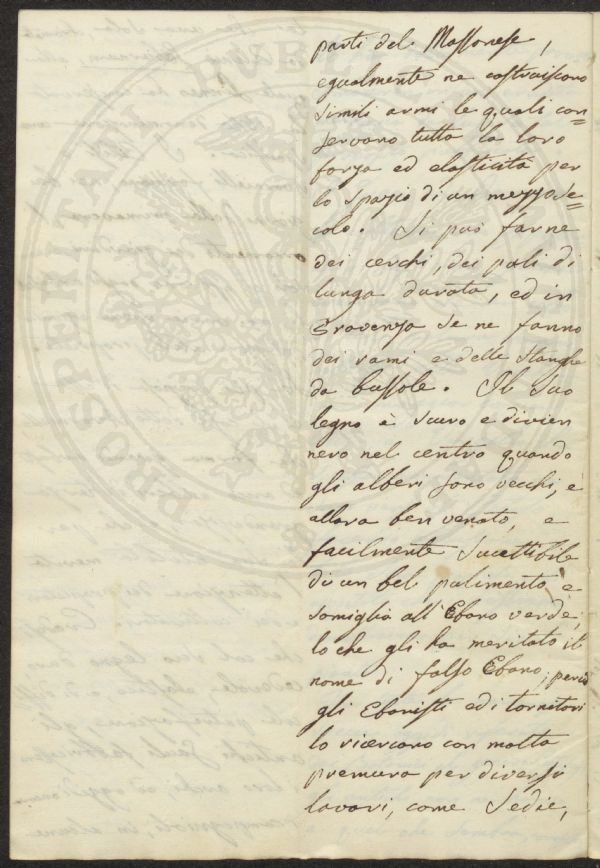 parti del Massonese,
egualmente ne costruiscono
simili armi le quali con=
servano tutta la loro
forza ed elasticità per
lo spazio di un mezzo se=
colo. Si può farne
dei cerchi, dei pali di
lunga durata, ed in
Provenza se ne fanno
dei rami e delle stanghe
da bussole. Il suo
legno è scuro e divien
nero nel centro quando
gli alberi sono vecchi, è
allora ben venato, e
facilmente sucettibile
di un bel pulimento, e
somiglia all'Ebano verde;
lo che gli ha meritato il
nome di falso Ebano; perciò
gli Ebanisti ed i tornitori
lo ricercano con molta
premura per diversi
lavori, come Sedie,
PROSPERITATI PUBL